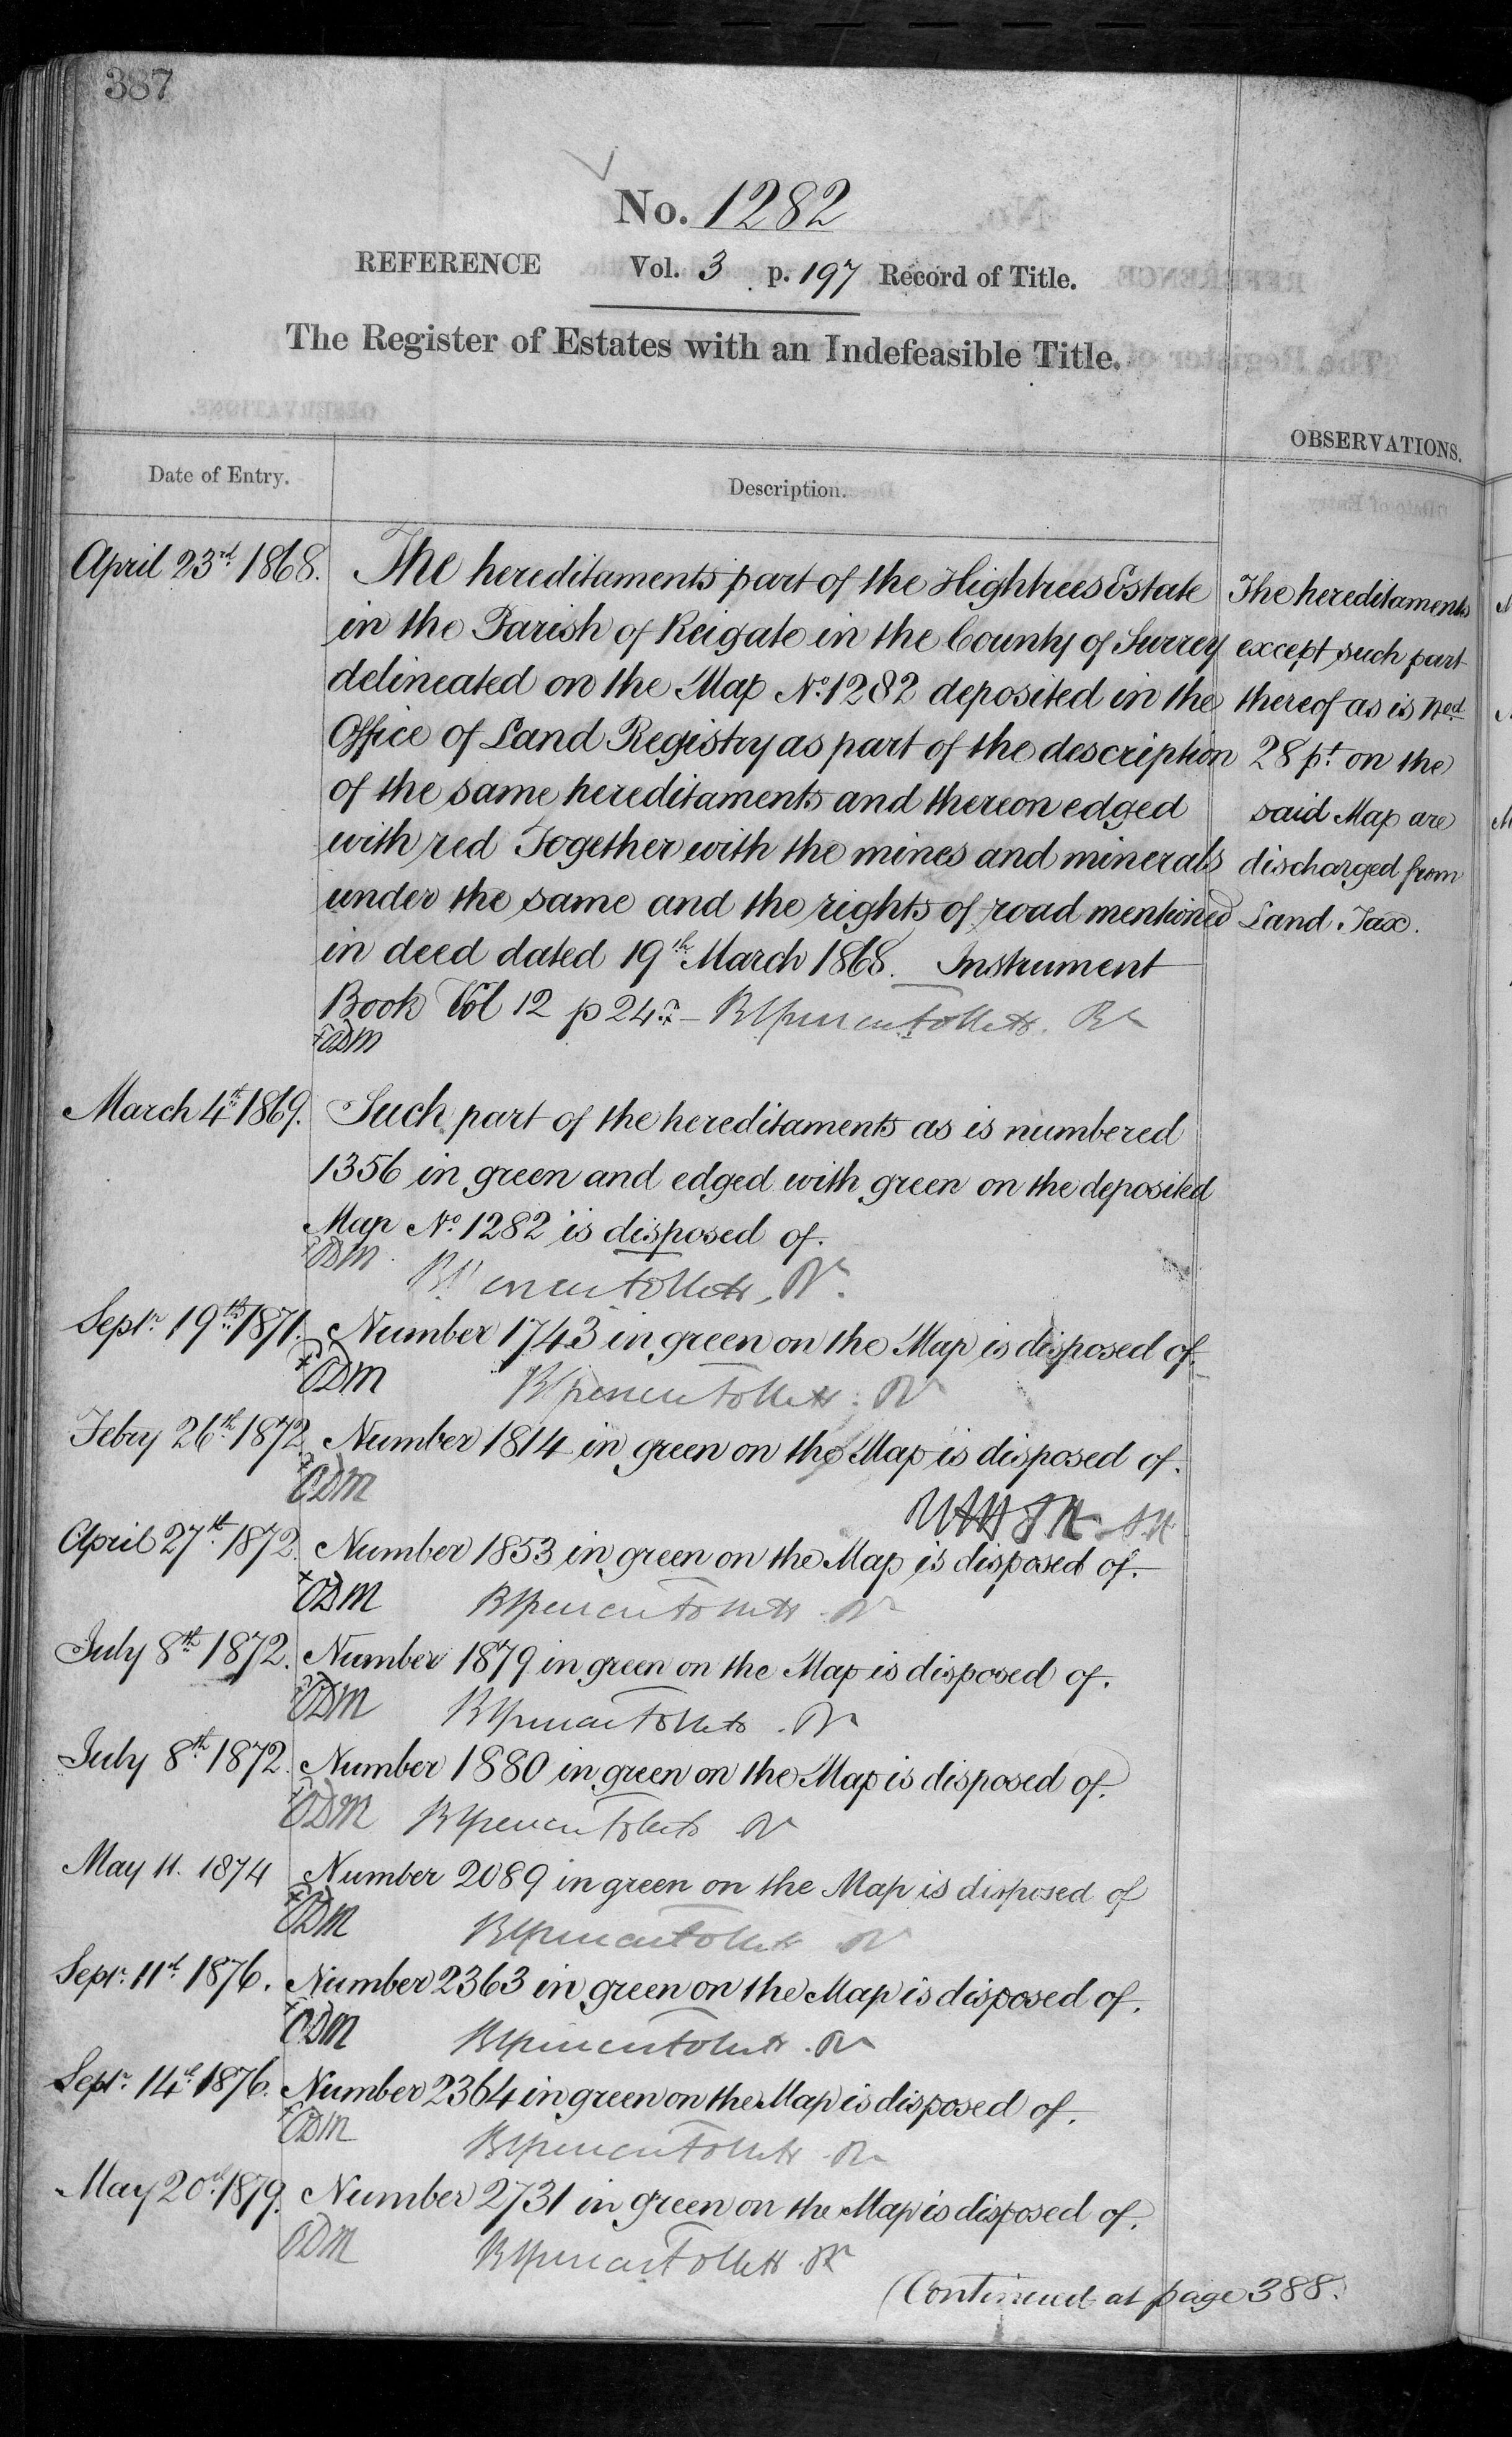 387
No. 1282
REFERENCE Vol. 3 p. 197 Record of Title.
The Register of Estates with an Indefeasible Title.
OBSERVATIONS.
Date of Entry.
Description.
April 23rd 1868. The hereditaments part of the Hightrees Estate
in the Parish of Reigate in the County of Surrey
delineated on the Map No. 1282 deposited in the
Office of Land Registry as part of the description
of the same hereditaments and thereon edged
with red Together with the mines and minerals
under the same and the rights of road mentioned
in deed dated 19th March 1868. Instrument
Book Vol 12 p
ODM
The hereditaments
except such part
thereof as is Ned
28 pt. on the
said Map are
discharged from
Land Tax.
March 4th 1869. Such part of the hereditaments as is numbered
1356 in green and edged with green on the deposited
Map No. 1282 is disposed of.
ODM
Septr. 19th 1871. Number 1743 in green on the Map is disposed of.
ODM
Febry 26th 1872 Number 1814 in green on the Map is disposed of.
ODM
April 27th 1872. Number 1853 in green on the Map is disposed of.
ODM
July 8th 1872. Number 1879 in green on the Map is disposed of.
ODM
July 8th 1872. Number 1880 in green on the Map is disposed of.
ODM
May 11. 1874 Number 2089 in green on the Map is disposed of
ODM
Septr. 11th 1876. Number 2363 in green on the Map is disposed of.
ODM
Septr. 14th 1876. Number 2364 in green on the Map is disposed of.
ODM
May 20th 1879. Number 2731 in green on the Map is disposed of.
ODM
(Continued at page 388.)